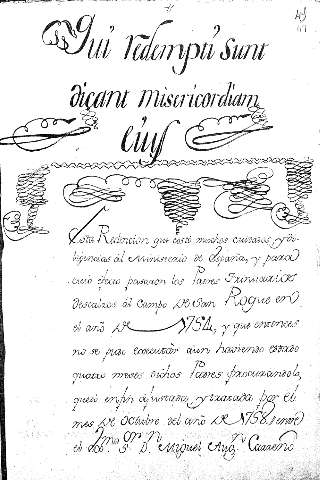 Qui redempti sunt
dicant misericordiam
eius
Esta Redencion que costó muchos cuidados, y
diligencias al Ministerio de España, y para
cuio efecto pasaron los Padres Trinitarios
Descalzos al Campo de San Roque en
el año de 1754, y que entonces
no se pudo executar aun haviendo estado
quatro meses dichos Padres procurandola,
quedó en fin ajustada, y tratada por el
mes de Octubre del año de 1758 entre
el S. D. Miguel Cazeno